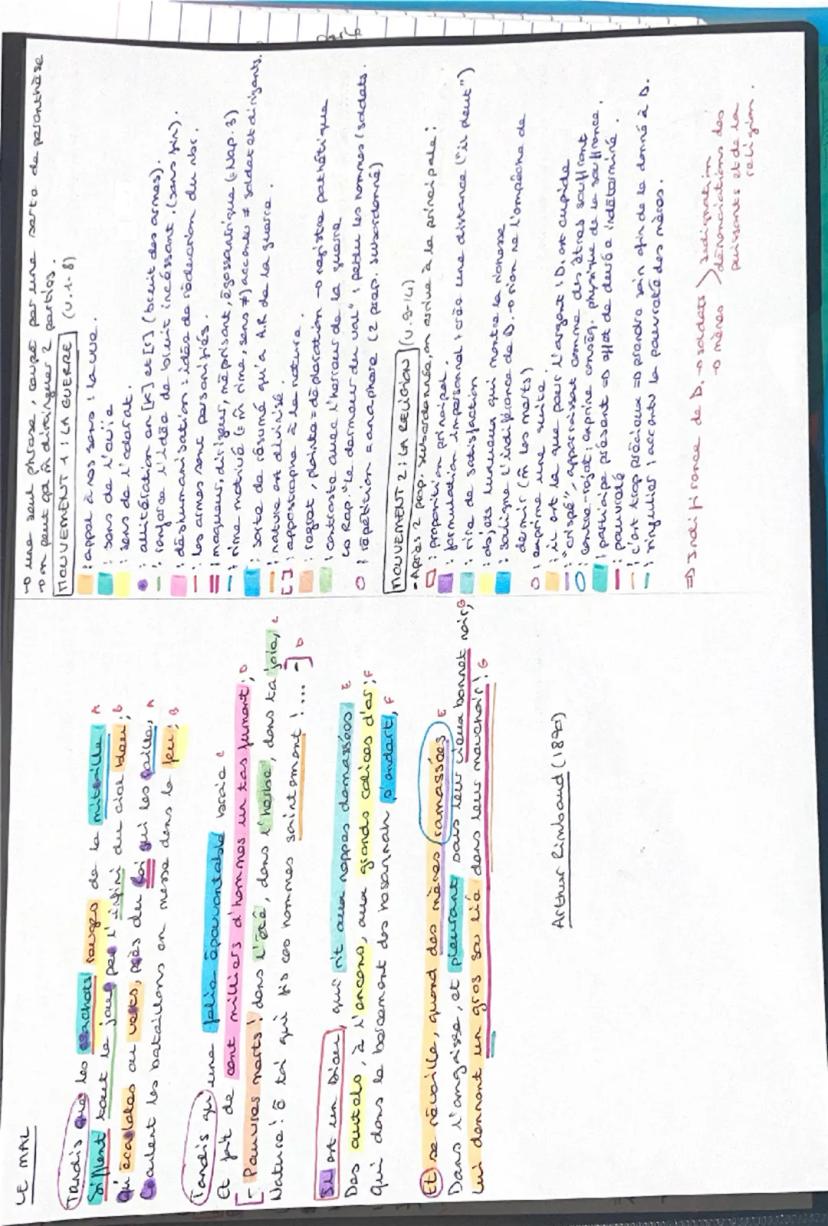 LE MAL
Tandis que les crachats rouges de la mitraille A
Sifflent tout le jour par l'infini du ciel bleu ; B
Qu'écarlates ou verts, près du Roi qui les raille, A
Croulent les bataillons en masse dans le feu ; B
Tandis qu'une folie épouvantable broie C
Et fait de cent milliers d'hommes un tas fumant ; D
[- Pauvres morts ! dans l'été, dans l'herbe, dans ta joie, C
Nature ! ô toi qui fis ces hommes saintement ! ... -] D
Il est un Dieu, qui rit aux nappes damassées E
Des autels, à l'encens, aux grands calices d'or ; F
Qui dans le bercement des hosannah s'endort, F
Et se réveille, quand des mères, ramassées E
Dans l'angoisse, et pleurant sous leur vieux bonnet noir, G
Lui donnent un gros sou lié dans leur mouchoir ! G
Arthur Rimbaud (1870)
→ une seul phrase, coupé par une sorte de paranthèse
→ on peut qd m̂ distinguer 2 parties.
MOUVEMENT 1 : LA GUERRE (v.1-8)
: appel à nos sens : la vue.
: sens de l'ouïe
: sens de l'odorat.
: allitération en [k] et [r] (bruit des armes).
: renforce l'idée de bruit incéssant. (sans fin).
: déshumanisation : idée de réduction du dor.
: les armes sont personifiés.
: moqueur, dirigeur, méprisant, égocentrique (=Nap.3)
: rime motivé (= m̂ rime, sens ≠) accentue ≠ soldat et dirigeants.
: sorte de résumé qu'a A.R de la guerre.
: nature est divinisé.
[ ] : appostrophe à la nature.
: regret, plainte = déploration → registre pathétique
: contraste avec l'horreur de la guerre
↳ Rap. "le dormeur du val" : perdu les hommes (soldats.
: répétition = anaphore (2 prop. subordonné)
MOUVEMENT 2 : LA RELIGION (v.9-14)
- Après 2 prop. subordonnée, on arrive à la principale ;
: proposition principal.
: formulation impersonnel : crée une distance ("il pleut")
: rire de satisfaction
: objets luxueux qui montre la richesse
: souligne l'indifférence de D. → rien ne l'empêche de
dormir (m̂ les morts)
: exprime une suite.
: il est là que pour l'argent : D. est cupide
: "crispé", apparaissent comme des êtres souffrant
: contre-rejet : exprime conséq. physique de la souffrance.
: participe présent => effet de durée indéterminé.
: pauvreté
: c'est trop précieux => prendre soin afin de le donné à D.
: singulier : accentue la pauvreté des mères.
=> Indifférence de D. → soldats → mères } indignation
dénonciations des
puissants et de la
religion.